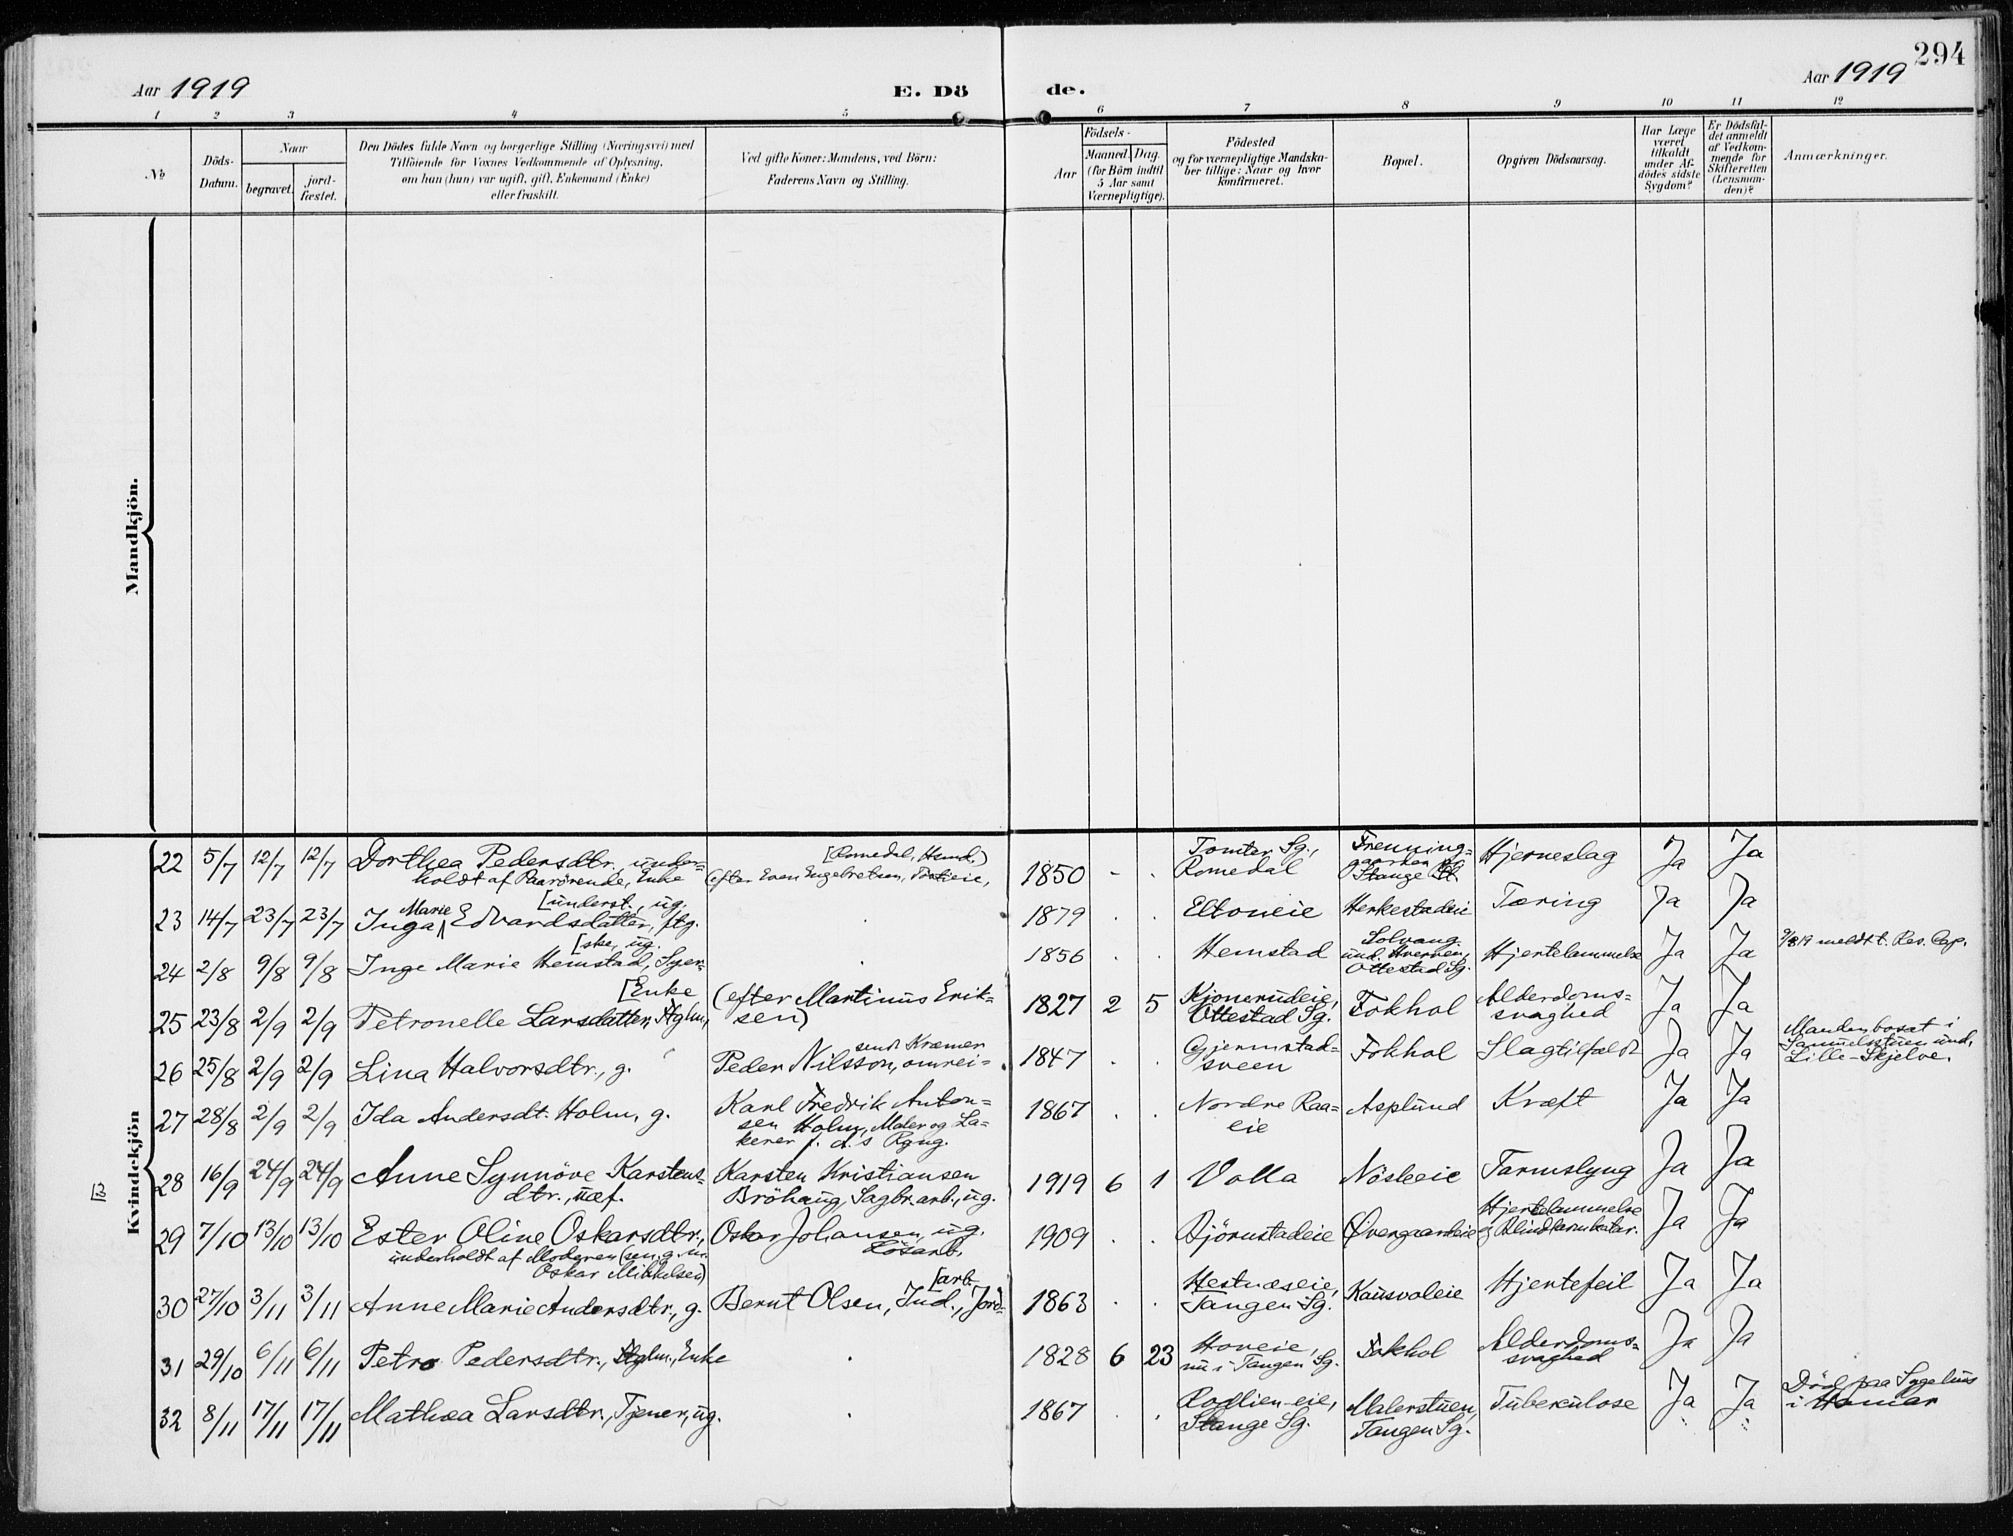 294
Aar 1919
E. Dö
de.
Aar 1919
1 2 3 4 5 6 7 8 9 10 11 12
№
Döds-
Datum.
Naar
begravet.
jord-
fæstet.
Den Dödes fulde Navn og borgerlige Stilling (Næringsvei) med
Tilföiende for Voxnes Vedkommende af Oplysning,
om han (hun) var ugift, gift, Enkemand (Enke)
eller fraskilt.
Ved gifte Koner: Mandens, ved Börn:
Faderens Navn og Stilling.
Födsels-
Aar
Maaned. Dag.
(for Börn indtil
5 Aar samt
Værnepligtige).
Födested
og for værnepligtige Mandska-
ber tillige: Naar og hvor
konfirmeret.
Bopæl.
Opgiven Dödsaarsag.
Har Læge
været
tilkaldt
under Af-
dödes sidste
Sygdom?
Er Dödsfal-
det anmeldt
af Vedkom-
mende for
Skifteretten
(Lensman-
den)?
Anmærkninger.
Mandkjön.
Kvindekjön
22 5/7 12/7 12/7 Dorthea Pedersdtr., under-
holdt af Paarørende, Enke
[Romedal, Hmd.)
(efter Even Engebretsen,
1850 - . Tomter Sg.,
Romedal
Frenning-
gaarden
Stange
Hjerneslag Ja Ja
23 14/7 23/7 23/7 Inga Marie Edvardsdatter, ftg.
[underst., ug.
. 1879 . . Eltoneie Herkestadeie Tæring Ja Ja
24 2/8 9/8 9/8 Inge Marie Hemstad, Syer-
[ske, ug.
. 1856 . . Hemstad Solvang
und. Hverven,
Ottestad Sg.
Hjertelammelse Ja Ja meldt t. Res. Cap.
25 23/8 2/9 2/9 Petronelle Larsdatter,
[Enke
(efter Martinus Erik-
sen)
1827 2 5 Kjonerudeie,
Ottestad Sg.
Fokhol Alderdoms-
svaghed
Ja Ja
26 25/8 2/9 2/9 Lina Halvorsdtr., g.
Peder Nilsson, omrei-
send Kræmer
1847 . . Gjermstad-
sveen
Fokhol Slagtilfældt Ja Ja Manden bosat i
Samuelsstuen und.
Lille-Skjelve.
27 28/8 2/9 2/9 Ida Andersdt. Holm, g.
Karl Fredrik Anton-
sen Holm, Maler og La-
kerer f. d.s Rgng.
1867 . . Nordre Raa-
eie
Asplund Kræft Ja Ja
28 16/9 24/9 24/9 Anne Synnöve Karstens-
dtr., uæf.
Karsten Kristiansen
Bröhaug, Sagbr.arb., ug.
1919 6 1 Volla Nösleeie Tarmslyng Ja Ja
29 7/10 13/10 13/10 Ester Oline Oskarsdtr.,
underholdt af Moderen (sen. g. m.
Oskar Mikkelsen)
Oskar Johansen, ug.
Løsarb.
1909 . . Bjørnstadeie Øvergaardeie Hjertelammelse
og Blindtarmkatar.
Ja Ja
30 27/10 3/11 3/11 Anne Marie Andersdtr., g.
Bernt Olsen, Ind., Jord-
[arb.
1863 . . Hestnæseie,
Tangen Sg.
Kausvoleie Hjertefeil Ja Ja
31 29/10 6/11 6/11 Petra Pedersdtr., Enke
. 1828 6 23 Hoveie,
nu i Tangen Sg.
Fokhol Alderdoms-
svaghed
Ja Ja
32 8/11 17/11 17/11 Mathea Larsdtr., Tjener, ug.
. 1867 . . Rodlien-eie,
Stange Sg.
Malerstuen,
Tangen Sg.
Tuberculose Ja Ja Död paa Sygehus
i Hamar